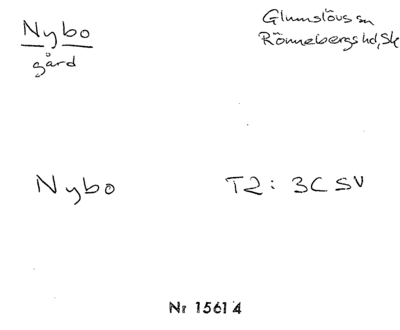 Nybo
gård
Glumslövs sn
Rönnebergs hd, Sk
Nybo
T2: 3C SV
Nr 15614